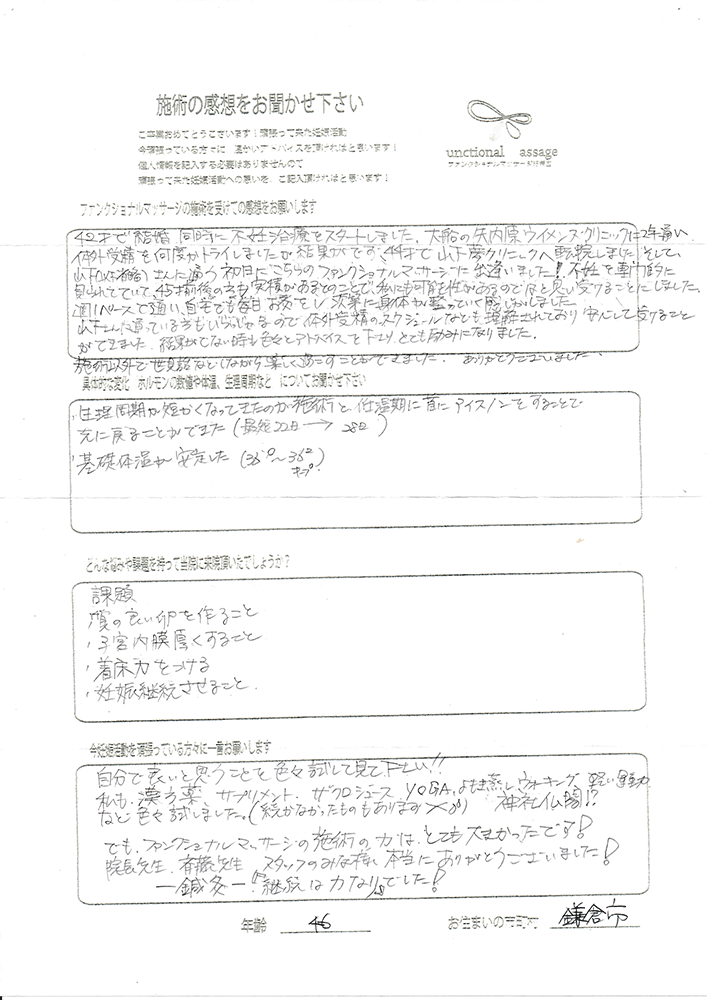 施術の感想をお聞かせ下さい
ご卒業おめでとうございます！頑張って来た妊娠活動
今頑張っている方々に 温かいアドバイスを頂ければと思います！
個人情報を記入する必要はありませんので
頑張って来た妊娠活動への思いを、ご記入頂ければと思います！
unctional assage
ファンクショナルマッサージ
ファンクショナルマッサージの施術を受けての感想をお願いします
42才で結婚 同時に不妊治療をスタートしました。大船の矢内原ウイメンズクリニックに2年通い
体外受精を何度かトライしましたが結果がでず、44才で山下湘南夢クリニックへ転院しました。そして、
さんに通う初日にこちらのファンクショナルマッサージに出逢いました！不妊を専門的に
見られていて、45才前後の方も実績があるとのことで、私にも可能性があるのでは と思い受けることにしました。
週1ペースで通い、自宅でも毎日お灸をし 次第に身体が整っていく感じがしました。
山下さんに通っている方もいらっしゃるので体外受精のスケジュールなども理解されており 安心して受けること
ができました。結果がでない時も色々とアドバイスを下さり、とても励みになりました。
施術以外で世間話などしながら楽しく過ごすことができました。 ありがとうございました。
具体的な変化 ホルモンの数値や体温、生理周期など についてお聞かせ下さい
・生理周期が短かくなってきたのが施術と、低温期に首にアイスノンをすることで
元に戻ることができた (最短22日 → 28日 )
・基礎体温が安定した (36⁰～36² キープ)
どんな悩みや課題を持って当院に来院頂いたでしょうか？
課題
・質の良い卵を作ること
・子宮内膜厚くすること
・着床力をつける
・妊娠継続させること。
今妊娠活動を頑張っている方々に一言お願いします
自分で良いと思うことを色々試して見て下さい!!
私も、漢方薬、サプリメント、ザクロジュース、YOGA、よもぎ蒸し、ウォーキング、軽い運動
など色々試しました。(続かなかったものもあります 神社仏閣!?
でも、ファンクショナルマッサージの施術の力は、とても大きかったです！
院長先生、斉藤先生、スタッフのみな様、本当にありがとうございました！
一鍼灸一！"継続は力なり"でした！
年齢 46
お住まいの市町村 鎌倉市